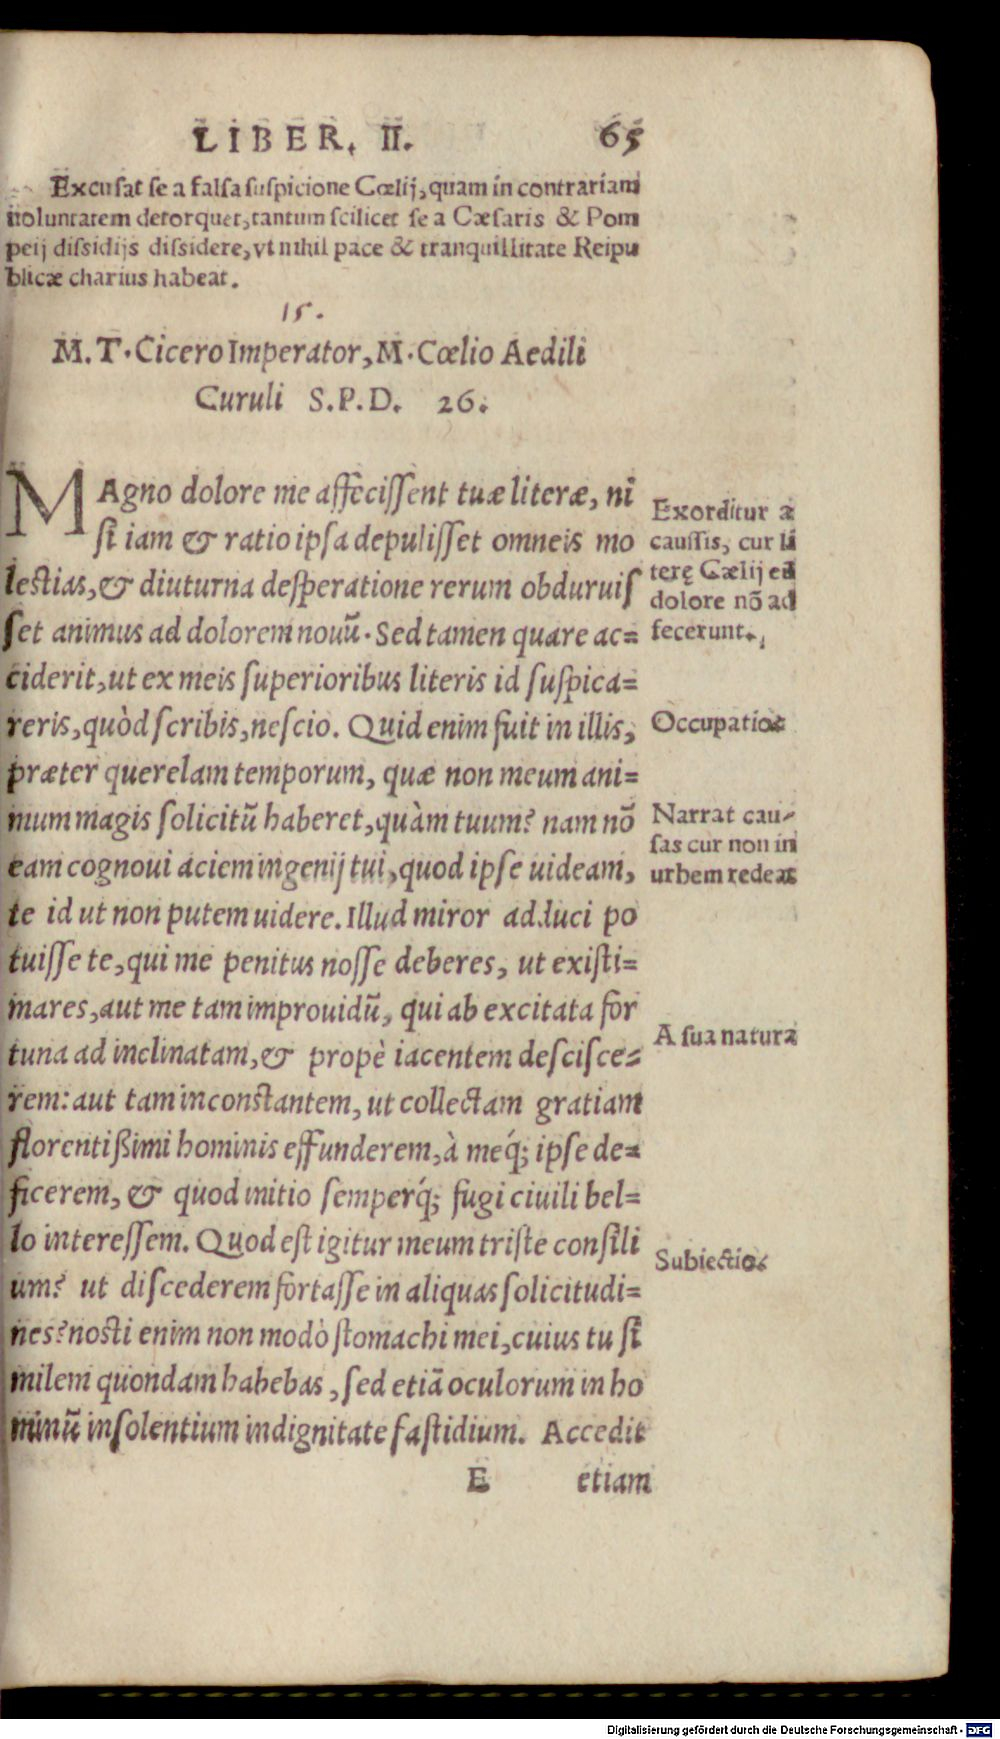 LIBER. II. 65
Excusat se a falsa suspicione Cœlij, quam in contrariam
uoluntatem detorquet, tantum scilicet se a Cæsaris & Pom
peij dissidijs dissidere, vt nihil pace & tranquillitate Reipu
blicæ charius habeat.
15.
M. T. Cicero Imperator, M. Cœlio Aedili
Curuli S. P. D. 26.
MAgno dolore me affecissent tuæ literæ, ni
si iam & ratio ipsa depulisset omneis mo
lestias, & diuturna desperatione rerum obduruis
set animus ad dolorem nouũ. Sed tamen quare ac=
ciderit, ut ex meis superioribus literis id suspica=
reris, quòd scribis, nescio. Quid enim fuit in illis,
præter querelam temporum, quæ non meum ani=
mum magis solicitũ haberet, quàm tuum? nam nõ
eam cognoui aciem ingenij tui, quod ipse uideam,
te id ut non putem uidere. Illud miror adduci po
tuisse te, qui me penitus nosse deberes, ut existi=
mares, aut me tam improuidũ, qui ab excitata for
tuna ad inclinatam, & propè iacentem descisce=
rem: aut tam inconstantem, ut collectam gratiam
florentißimi hominis effunderem, à meq́; ipse de=
ficerem, & quod initio semperq́; fugi ciuili bel=
lo interessem. Quod est igitur meum triste consili
um? ut discederem fortasse in aliquas solicitudi=
nes? nosti enim non modò stomachi mei, cuius tu si
milem quondam habebas, sed etiã oculorum in ho
minũ insolentium indignitate fastidium. Accedit
E etiam
Exorditur a
caussis, cur li
terę Cœlij ei
dolore nõ ad
fecerunt.
Occupatio.
Narrat cau-
sas cur non in
urbem redeat
A sua natura
Subiectio.
Digitalisierung gefördert durch die Deutsche Forschungsgemeinschaft - DFG